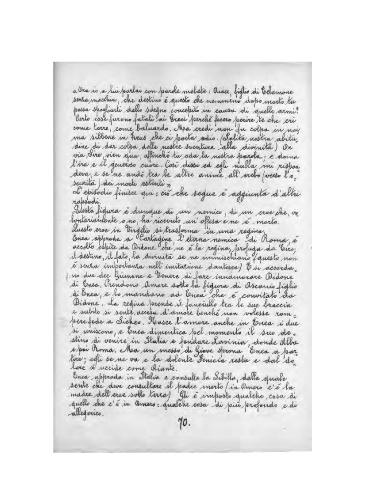 « Ma io a lui parlai con parole melate: Aiace, figlio di Telamone
senza macchia, che destino è questo che nemmeno dopo morto tu
possa spogliarti dello sdegno concetto in causa di quelle armi?
Certo esse furono fatali ai Greci perchè fecero perire te che eri
come torre, come baluardo. Ma credi non fu colpa in noi
ma sibbene in Zeus che si porta odio.
dire di dar colpa delle nostre sventure alla divinità) Or
via Sire, vien qua affinchè tu oda la nostra parola, e doma
l'ira e il generoso cuore. Così dissi ed egli nulla mi rispon-
deva, e se ne andò tra le altre anime all'erebo verso l'o-
scurità dei morti estinti ».
L'episodio finisce qui: ciò che segue è aggiunta d'altri
rapsodi.
Questa figura è dunque di un nemico, di un eroe che, vo-
lontariamente o no, ha ricevuto un'offesa e ne è morto.
Questo eroe in Virgilio si trasforma in una regina.
Enea approda a Cartagine l'eterna nemica di Roma, è
accolto ospite da Didone che ne è la regina, profuga da Tiro.
Il destino, il fato, la divinità se ne immischiano (questo non
è senza importanza nell'imitazione dantesca) E si accorda-
no due dee Giunone e Venere di fare innamorare Didone
di Enea. Prendono Amore sotto la figura di Ascanio, figlio
di Enea, e lo mandano ad Enea che è convitato da
Didone. La regina prende il fanciullo tra le sue braccia
e subito si sente accesa d'amore benchè non volesse rom-
pere fede a Sicheo. Nasce l'amore anche in Enea: i due
si uniscono, e Enea dimentica pel momento il suo de-
stino di venire in Italia e fondare Lavinia, donde Alba
e poi Roma; Ma un messo di Giove sprona Enea a par-
tire; egli se ne va e la dolente Fenicia resta e dal do-
lore si uccide come Aiante.
Enea, approda in Italia e consulta la Sibilla, dalla quale
sente che deve consultare il padre morto (in Omero c'è la
madre dell'eroe sotto terra) Gli è imposto qualche cosa di
quello che c'è in Omero: qualche cosa di più profondo e di
allegorico.
70.